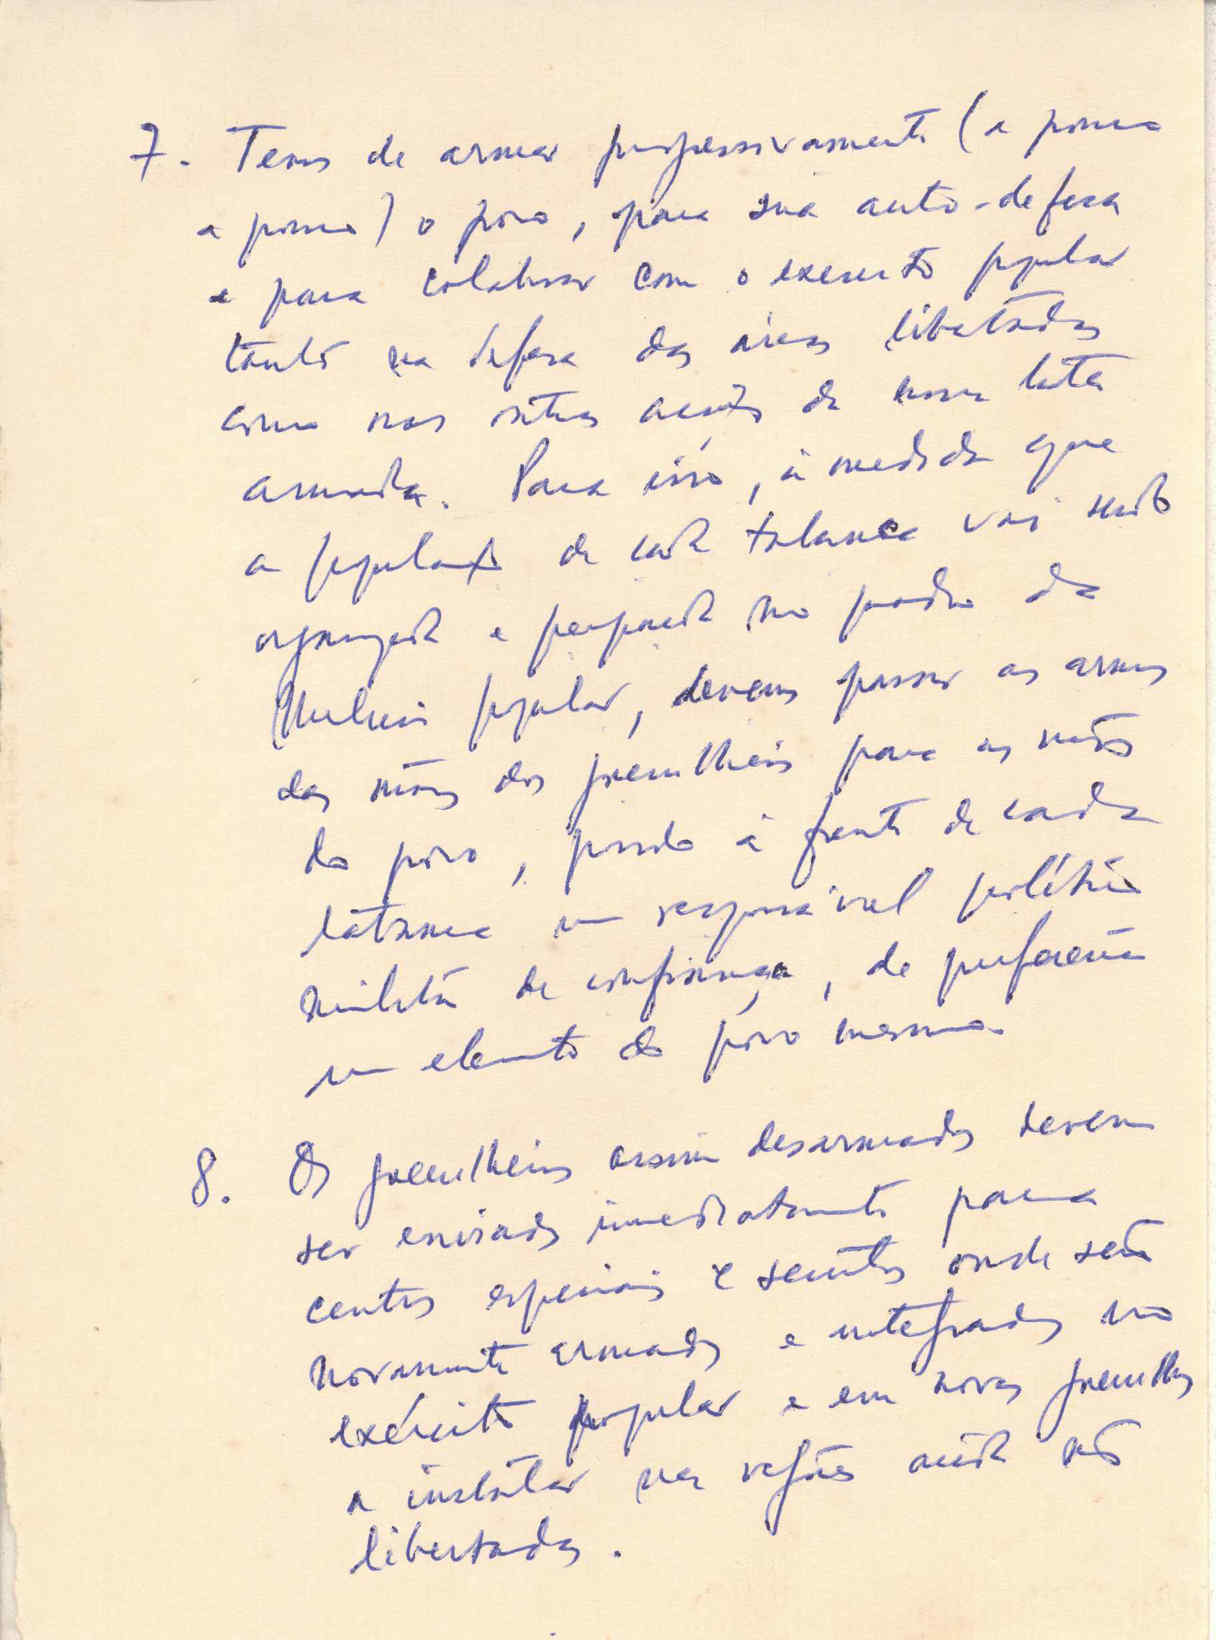 7. Temos de armar progressivamente (a pouco
a pouco) o povo, para sua auto-defesa
e para colaborar com o exercito popular
tanto na defesa das áreas libertadas
como nas outras acções da nossa luta
armada. Para isso, à medida que
a população de cada tabanca vai sendo
organizada e preparada no quadro da
Milícia popular, devemos passar as armas
das mãos dos guerrilheiros para as mãos
do povo, pondo à frente de cada
tabanca um responsável político
militar de confiança, de preferência
um elemento do povo mesmo.
8. Os guerrilheiros assim desarmados devem
ser enviados imediatamente para
centros especiais e secretos onde serão
novamente armados e integrados no
exército popular e em novas guerrilhas
a instalar nas regiões ainda não
libertadas.